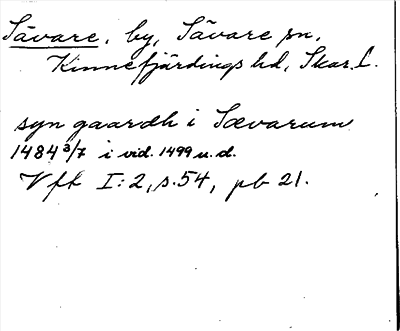 Sävare, by, Sävare sn,
Kinnefjärdings hd, Skar. L.
syn gaardh i Sævarum
1484 3/7 i vid. 1499 u. d.
Vfk I:2, s. 54, pb 21.